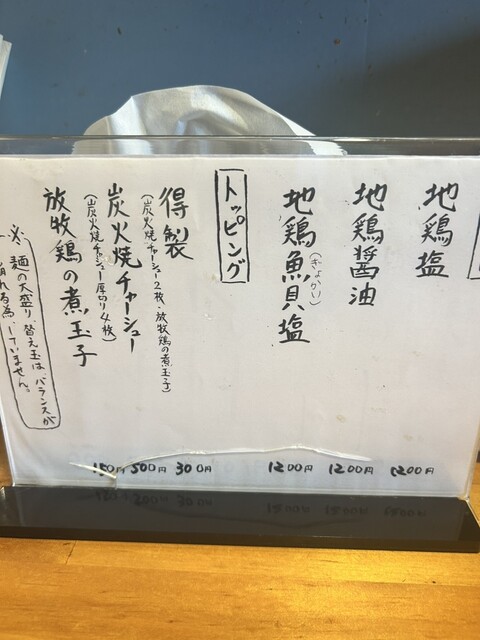 地鶏塩 1200円
地鶏醤油 1200円
地鶏魚貝塩 1200円
(ぎょかい)
トッピング
得製 300円
(炭火焼チャーシュー2枚・放牧鶏の煮玉子)
炭火焼チャーシュー 500円
(炭火焼チャーシュー厚切り4枚)
放牧鶏の煮玉子 150円
※ 麺の大盛り、替え玉は、バランスが
崩れる為、していません。